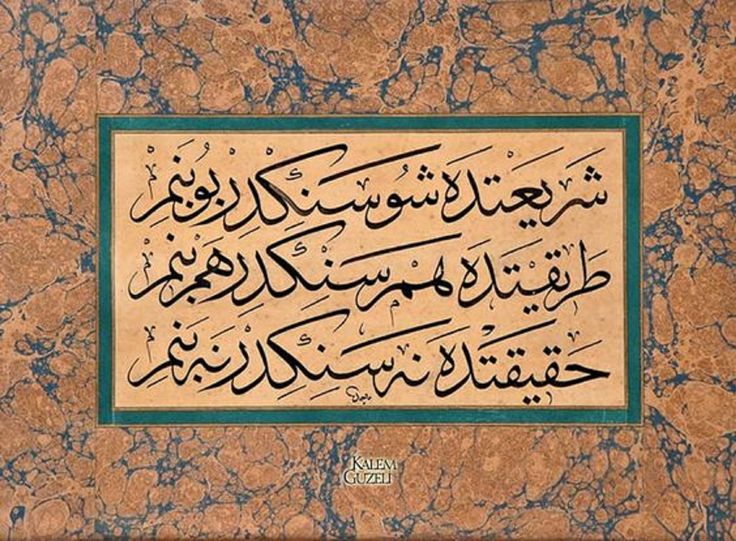 شريعتده شو سنڭدر بو بنم
طريقتده هم سنڭدر هم بنم
حقيقتده نه سنڭدر نه بنم
KALEM
GÜZELİ